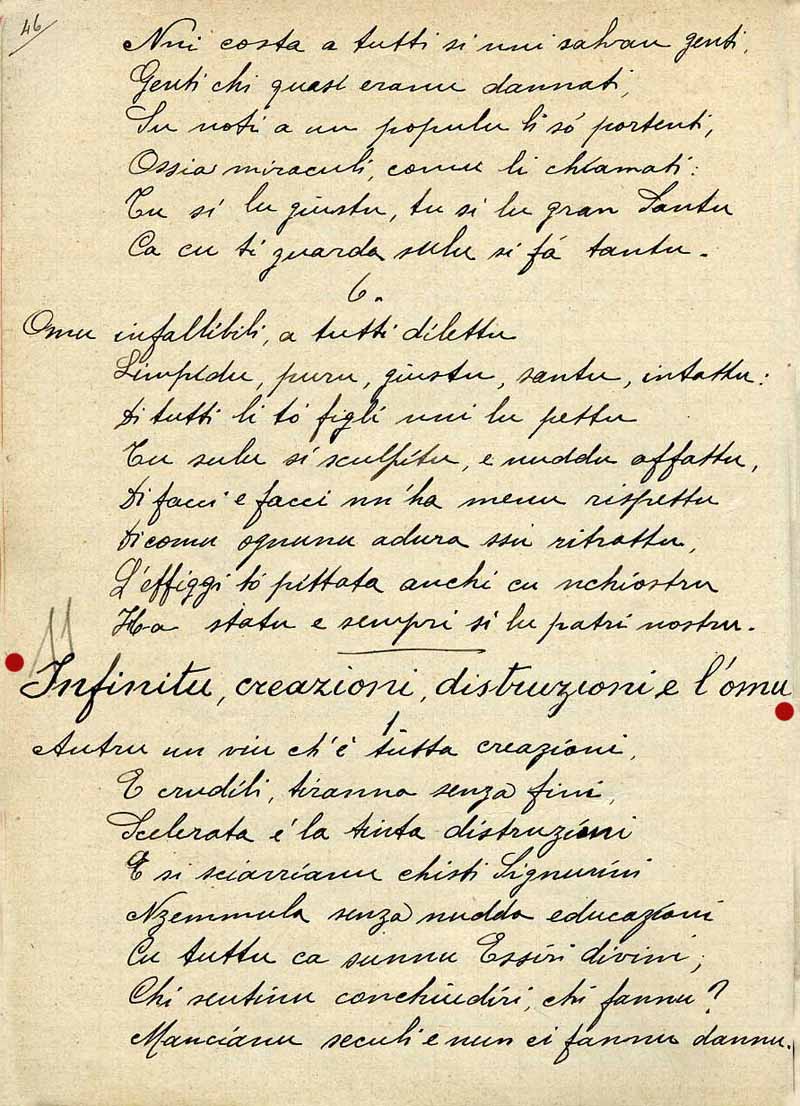 46
Nni costa a tutti si nni salvau genti,
Genti chi quasi eranu dannati,
Su noti a un populu li só portenti,
Ossia miraculi, comu li chiamati:
Tu si lu giustu, tu si lu gran Santu
Ca cu ti guarda sulu si fá tantu.
6.
Omu infallibili, a tutti dilettu
Limpidu, puru, giustu, santu, intattu:
Di tutti li tó figli nni lu pettu
Tu sulu si sculpitu, e nuddu affattu,
Di facci e facci nn'ha menu rispettu
Di comu ognunu adura ssu ritrattu,
L'effiggi tó pittata anchi cu nchiostru
Ha statu e sempri si lu patri nostru.
11
Infinitu, creazioni, distruzioni e l'omu
1
Autru un viu ch'é tutta creazioni,
E crudili, tiranna senza fini,
Scelerata é la tinta distruzioni
E si sciarrianu chisti Signurini
Nzemmula senza nudda educazioni
Cu tuttu ca sunnu Essiri divini;
Chi sentinu conchiudiri, chi fannu?
Mancianu seculi e nun ci fannu dannu.